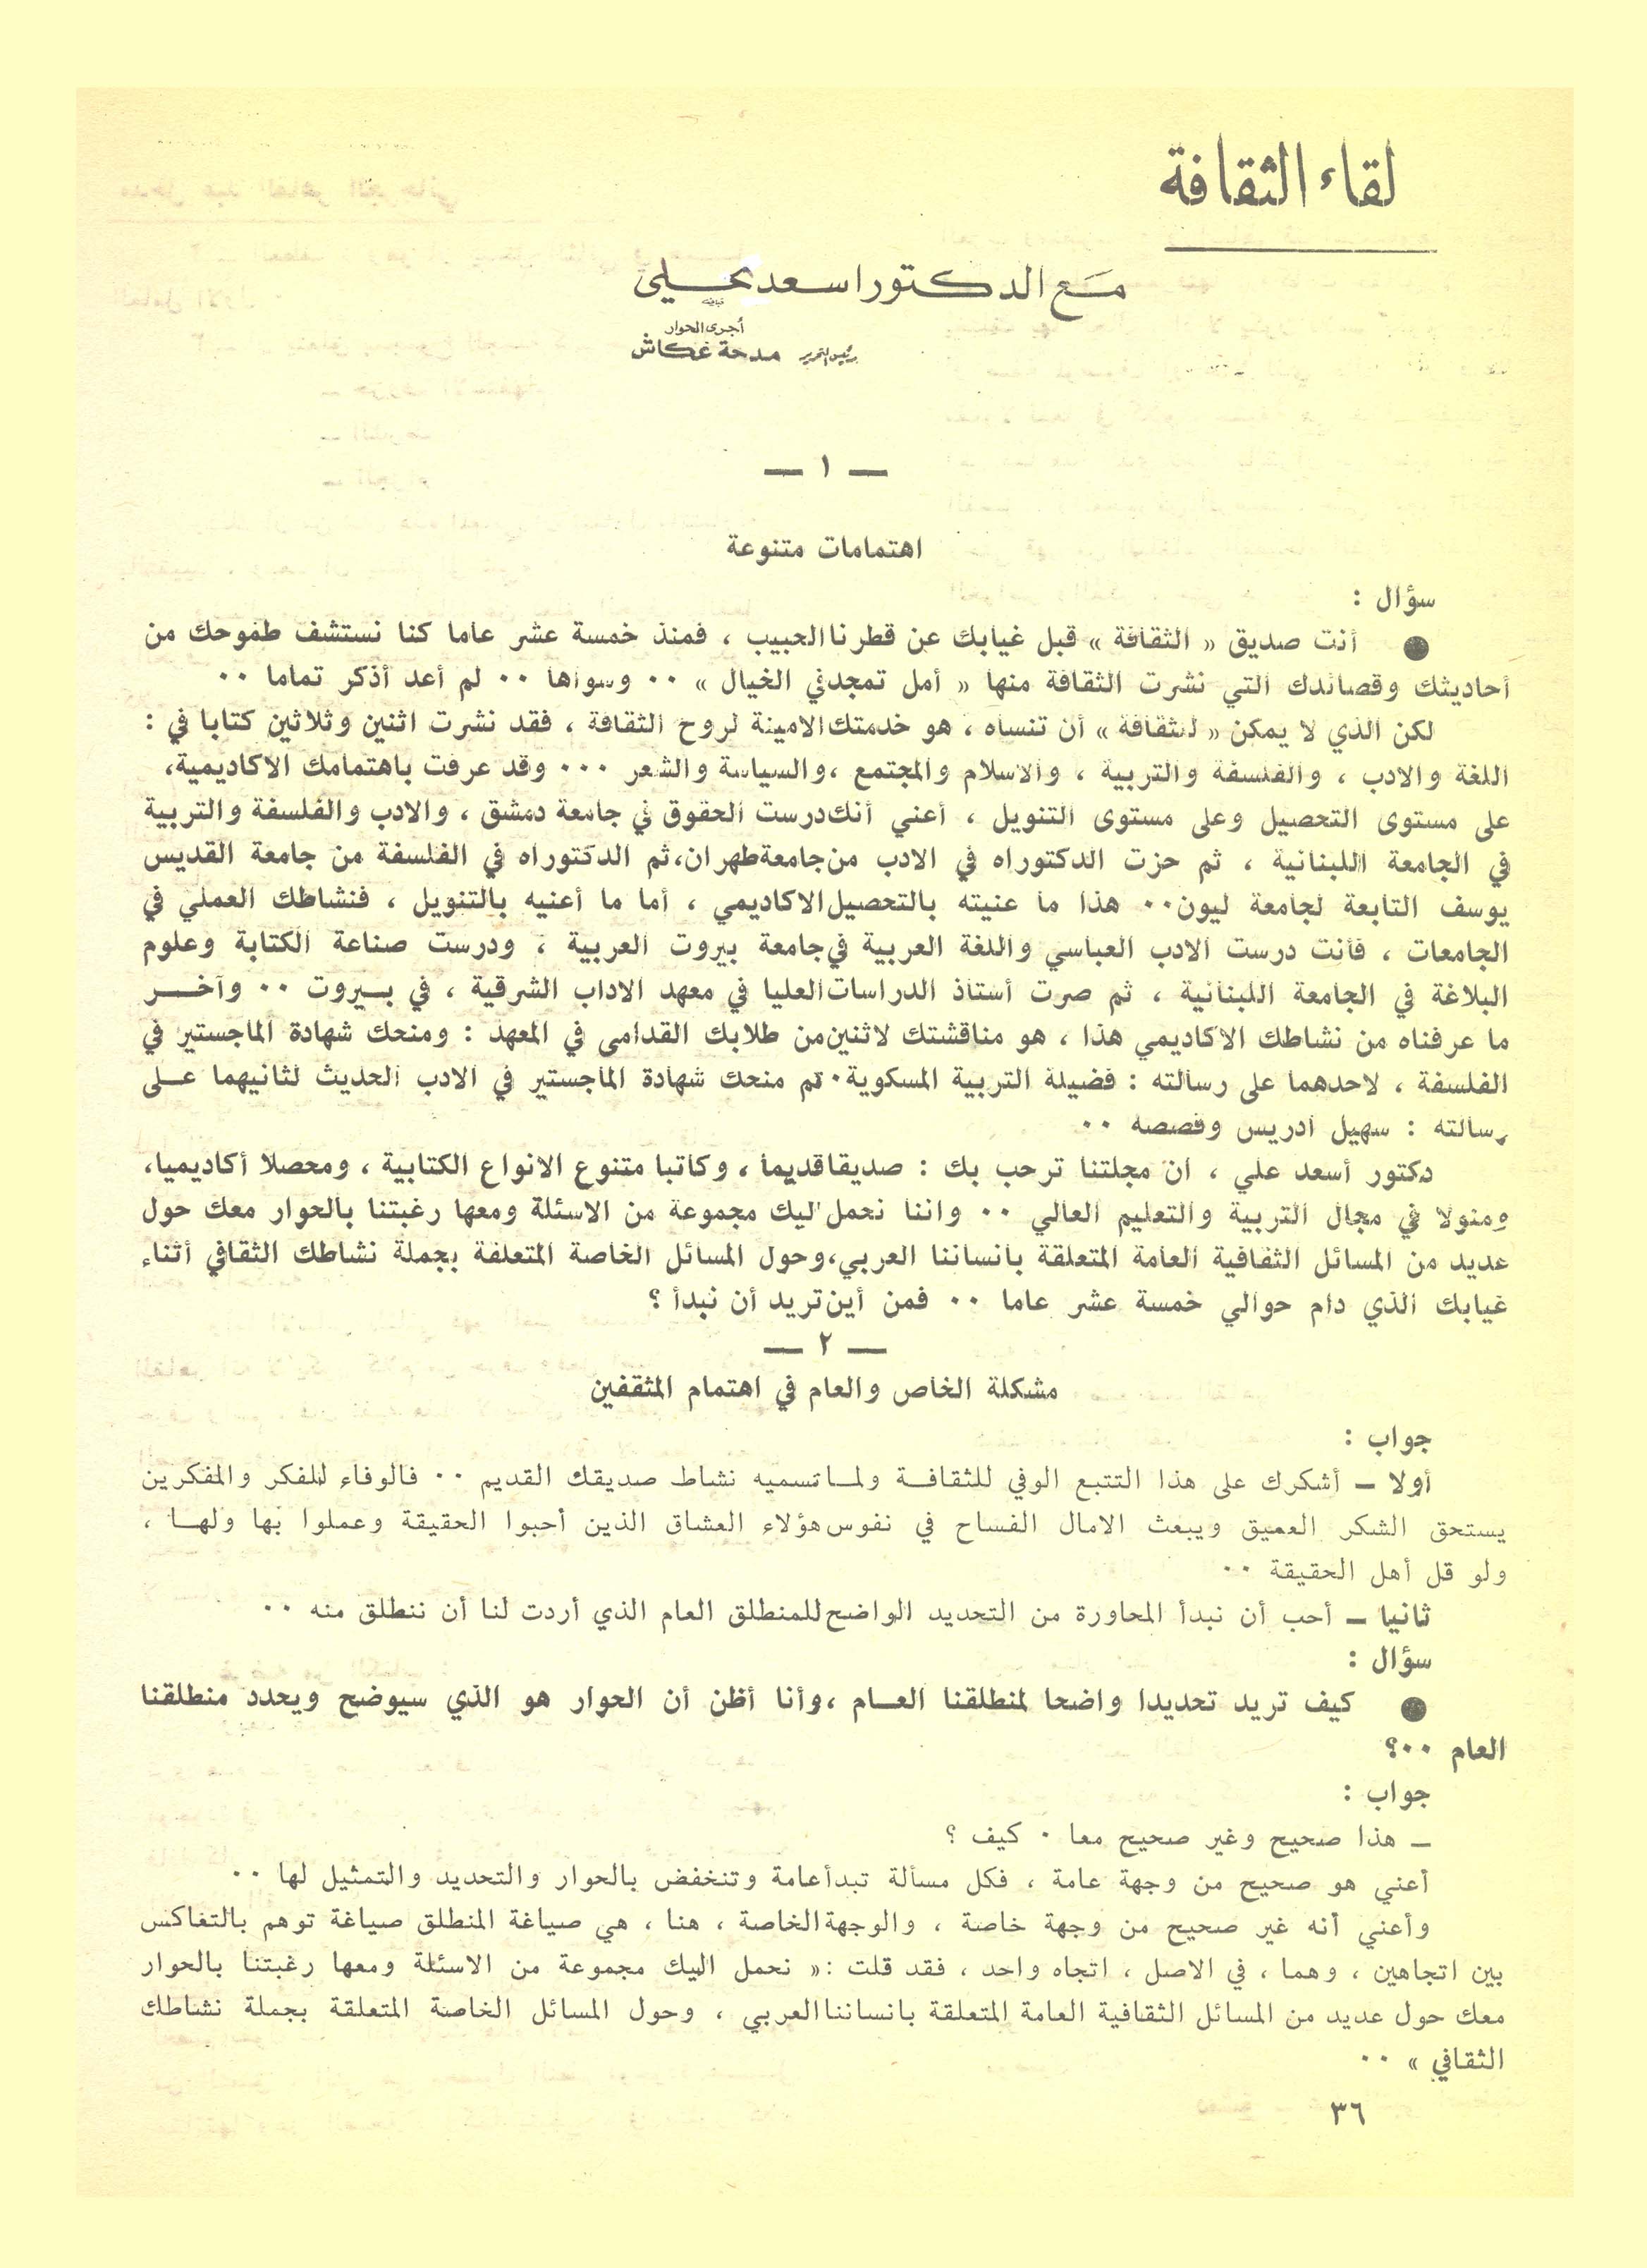 لقاء الثقافة
مع الدكتور اسعد علي
أجرى الحوار
رئيس التحرير مدحة عكاش
— ١ —
اهتمامات متنوعة
سؤال :
● أنت صديق « الثقافة » قبل غيابك عن قطرنا الحبيب ، فمنذ خمسة عشر عاما كنا نستشف طموحك من
أحاديثك وقصائدك التي نشرت الثقافة منها « أمل تمجدني الخيال » ٠٠ وسواها ٠٠ لم أعد أذكر تماما ٠٠
لكن الذي لا يمكن « للثقافة » أن تنساه ، هو خدمتك الامينة لروح الثقافة ، فقد نشرت اثنين وثلاثين كتابا في :
اللغة والادب ، والفلسفة والتربية ، والاسلام والمجتمع ،والسياسة والشعر ٠٠٠ وقد عرفت باهتمامك الاكاديمية،
على مستوى التحصيل وعلى مستوى التنويل ، أعني أنك درست الحقوق في جامعة دمشق ، والادب والفلسفة والتربية
في الجامعة اللبنانية ، ثم حزت الدكتوراه في الادب من جامعة طهران،ثم الدكتوراه في الفلسفة من جامعة القديس
يوسف التابعة لجامعة ليون٠٠ هذا ما عنيته بالتحصيل الاكاديمي ، أما ما أعنيه بالتنويل ، فنشاطك العملي في
الجامعات ، فأنت درست الادب العباسي واللغة العربية في جامعة بيروت العربية ، ودرست صناعة الكتابة وعلوم
البلاغة في الجامعة اللبنانية ، ثم صرت أستاذ الدراسات العليا في معهد الاداب الشرقية ، في بيروت ٠٠ وآخر
ما عرفناه من نشاطك الاكاديمي هذا ، هو مناقشتك لاثنين من طلابك القدامى في المعهد : ومنحك شهادة الماجستير في
الفلسفة ، لاحدهما على رسالته : فضيلة التربية المسكوية٠ ثم منحك شهادة الماجستير في الادب الحديث لثانيهما على
رسالته : سهيل ادريس وقصصه ٠٠
دكتور أسعد علي ، ان مجلتنا ترحب بك : صديقا قديما ، وكاتبا متنوع الانواع الكتابية ، ومحصلا أكاديميا،
ومنولا في مجال التربية والتعليم العالي ٠٠ واننا نحمل اليك مجموعة من الاسئلة ومعها رغبتنا بالحوار معك حول
عديد من المسائل الثقافية العامة المتعلقة بانساننا العربي،وحول المسائل الخاصة المتعلقة بجملة نشاطك الثقافي أثناء
غيابك الذي دام حوالي خمسة عشر عاما ٠٠ فمن أين تريد أن نبدأ ؟
— ٢ —
مشكلة الخاص والعام في اهتمام المثقفين
جواب :
أولا — أشكرك على هذا التتبع الوفي للثقافة ولما تسميه نشاط صديقك القديم ٠٠ فالوفاء للفكر والمفكرين
يستحق الشكر العميق ويبعث الامال الفساح في نفوس هؤلاء العشاق الذين أحبوا الحقيقة وعملوا بها ولها ،
ولو قل أهل الحقيقة ٠٠
ثانيا — أحب أن نبدأ المحاورة من التحديد الواضح للمنطلق العام الذي أردت لنا أن ننطلق منه ٠٠
سؤال :
● كيف تريد تحديدا واضحا لمنطلقنا العام ،وأنا أظن أن الحوار هو الذي سيوضح ويحدد منطلقنا
العام ٠٠؟
جواب :
— هذا صحيح وغير صحيح معا ٠ كيف ؟
أعني هو صحيح من وجهة عامة ، فكل مسألة تبدأ عامة وتنخفض بالحوار والتحديد والتمثيل لها ٠٠
وأعني أنه غير صحيح من وجهة خاصة ، والوجهة الخاصة ، هنا ، هي صياغة المنطلق صياغة توهم بالتعاكس
بين اتجاهين ، وهما ، في الاصل ، اتجاه واحد ، فقد قلت :« نحمل اليك مجموعة من الاسئلة ومعها رغبتنا بالحوار
معك حول عديد من المسائل الثقافية العامة المتعلقة بانساننا العربي ، وحول المسائل الخاصة المتعلقة بجملة نشاطك
الثقافي » ٠٠
٣٦